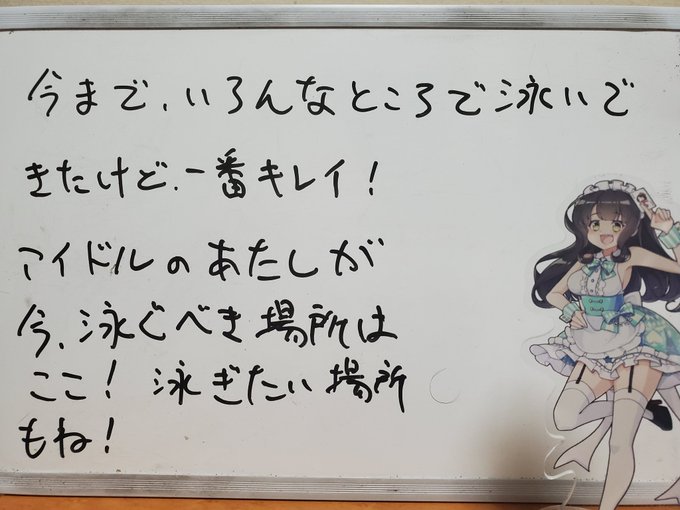 今まで、いろんなところで泳いで
きたけど、一番キレイ！
アイドルのあたしが
今、泳ぐべき場所は
ここ！ 泳ぎたい場所
もね！